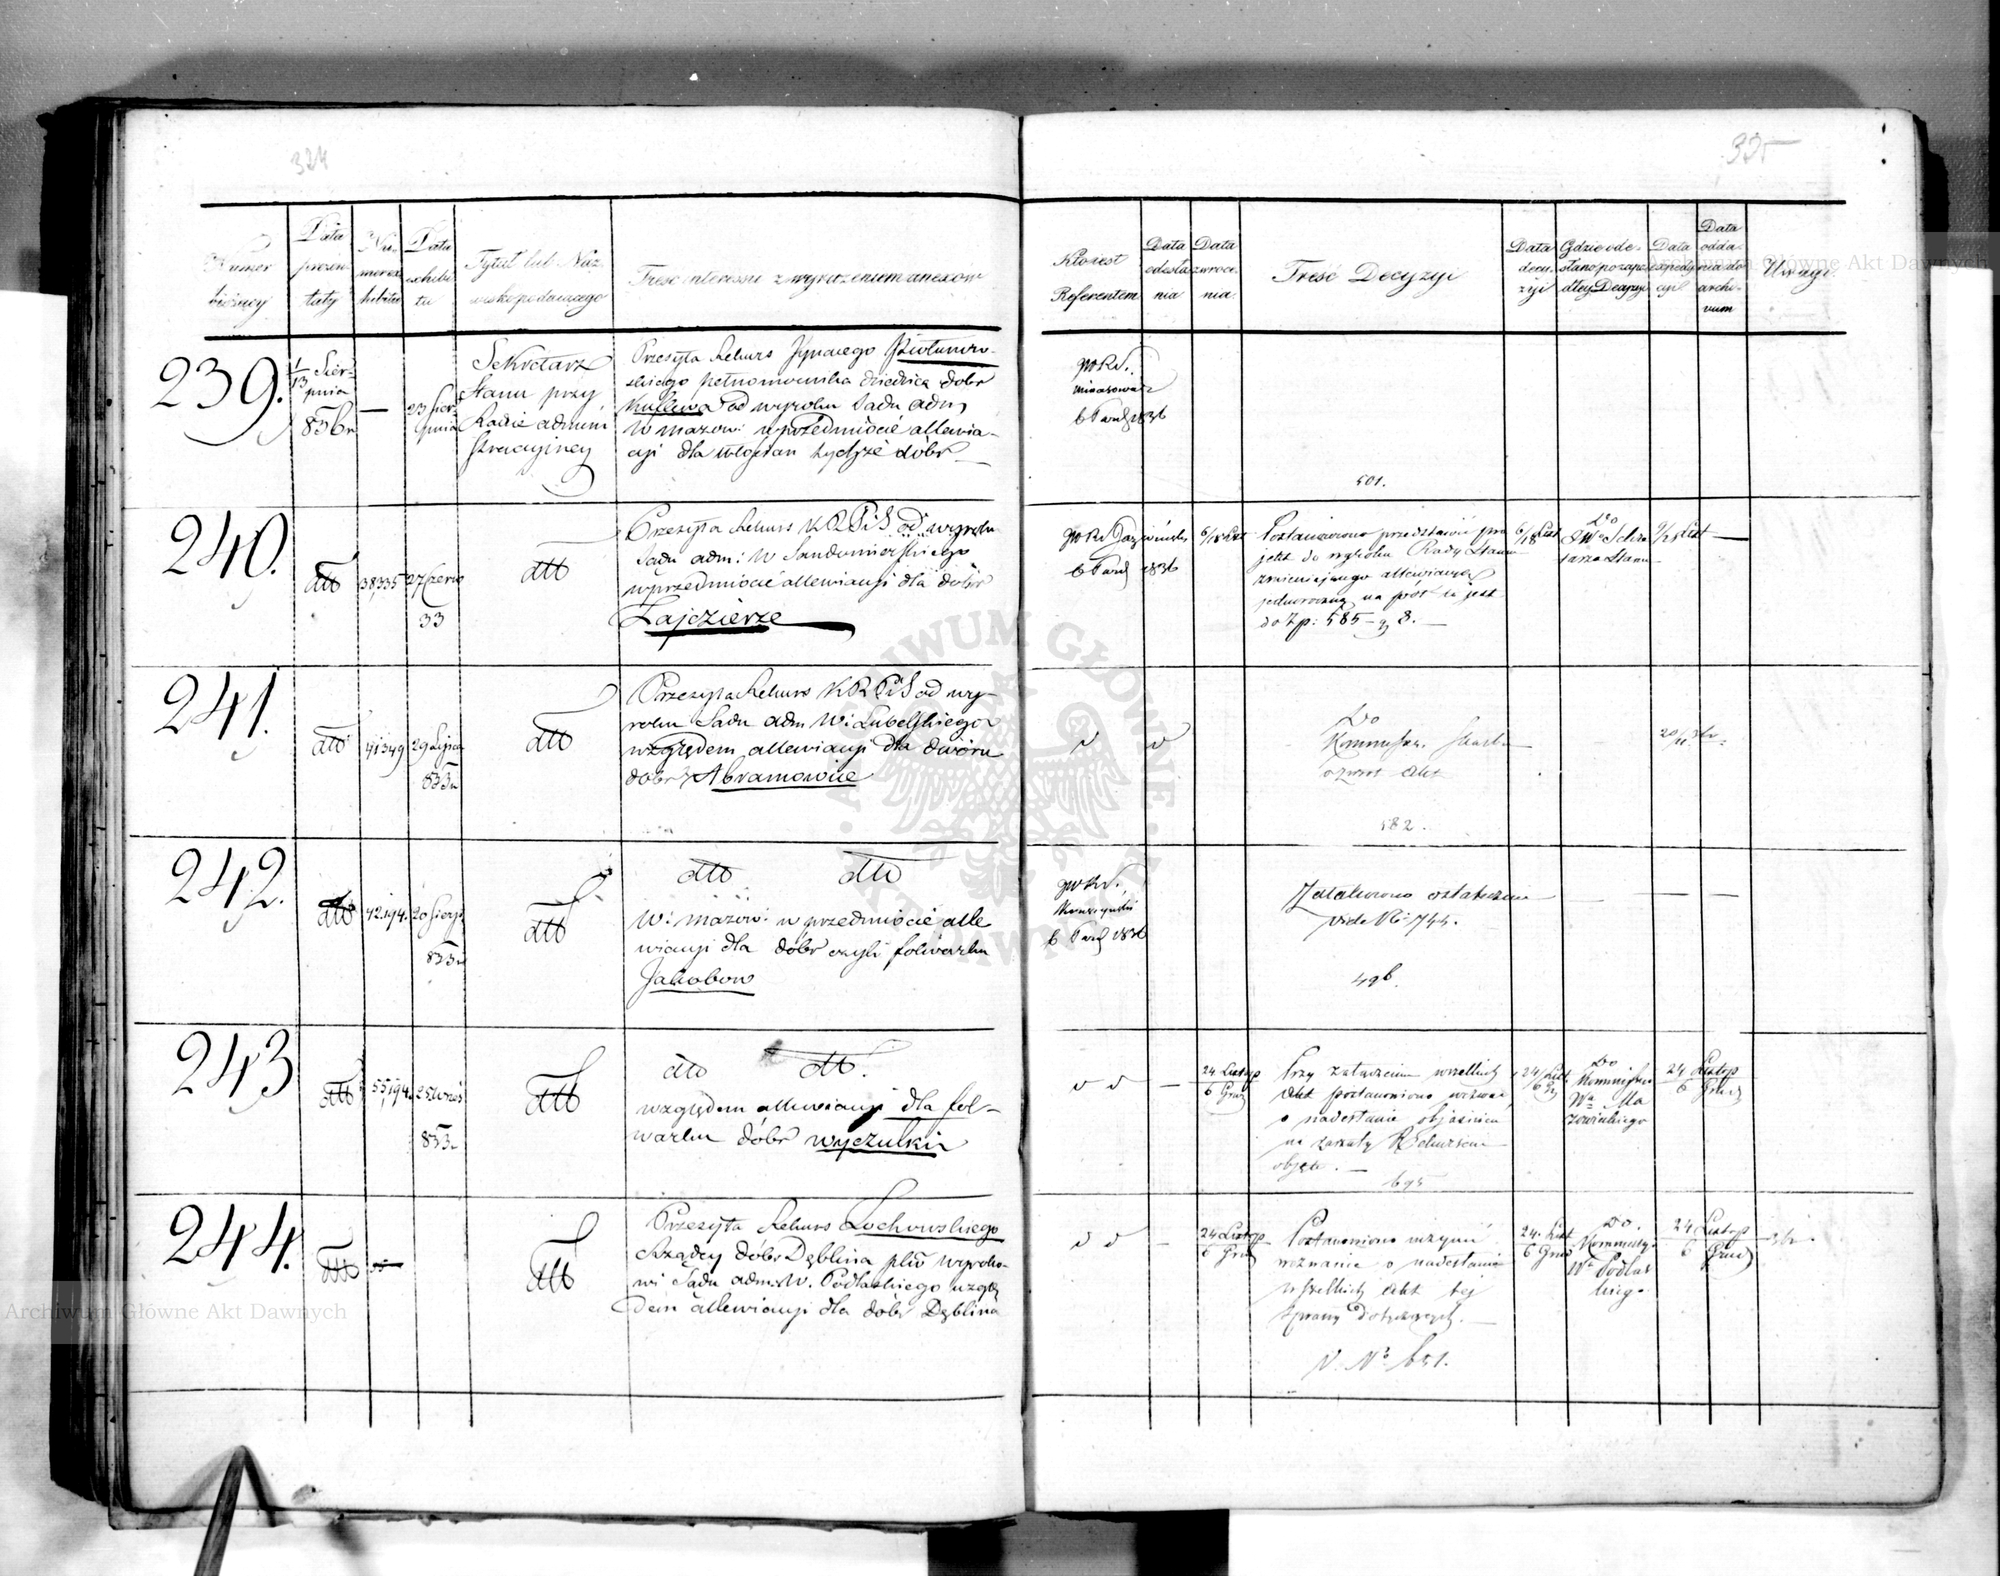 324
325
Numer bieżący
Data prezentaty
Numer exhibitu
Data exhibitu
Tytuł lub Nazwisko podaiącego
Treść interessu z wyrażeniem anexów
Kto iest Referentem
Data odesłania
Data zwrocenia
Treść Decyzyi
Data decyzyi
Data expedycyi
Data oddania do archivum
Uwagi
239.
1/13 Sierpnia
—
23 Sierpnia
Sekretarz
Stanu przy
Radzie admini
stracyiney
Przesyła Rekurs
skiego pełnomocnika dziedzica dobr
od wyroku Sadu adm
W mazow: w przedmiocie allewia-
cyi dla włościan tychże dóbr
1836
501.
240.
dtto
38,335
27 Czerw
33
dtto
Przesyła Rekurs KRPiS od wyroku
Sadu adm: W Sandomierskiego
w przedmiocie allewiacyi dla dobr
Zajezierze
1836
6/18 List
Postanowiono przedstawić pro
jekt do wyroku Rady Stanu
zmnieiszaiącego allewiacyą
jednoroczną na
do Zp: 585 - g 8. —
6/18 List
Do
—
241.
dtto
41349
29 Lipca
833
dtto
Przesyła Rekurs KRPiS od wy-
roku Sadu adm W: Lubelskiego
względem allewiacyi dla dworu
dobr Abramowice
Do
Kommiss. Skarb
o zwrot akt
582.
242.
dtto
42194.
20 Sierp
833
dtto
dtto dtto
W: mazow: w przedmiocie alle
wiacyi dla dóbr czyli folwarku
Jakobow
1836
Załatwiono ostatecznie
vide No 744.
— — —
496.
243
dtto
55,194.
25 Wrześ
833
dtto
dtto dtto.
względem allewiacyi dla fol-
warku dóbr Wyczulki
—
24 Listop
6 Grud
Przy załączeniu wszelkich
akt postanowiono wezwać
o nadesłanie obiaśnienia
na zarzuty Rekursem
objęte. —
695
24 List
6 Gr
Do
Kommissyi
Wa Ma
zowieckiego
24 Listop
6 Grud
244.
dtto
dtto
Przesyła Rekurs Lochowskiego
Rządcy dóbr Dęblina plko wyroko-
wi Sadu adm: W. Podlaskiego wzglę
dem allewiacyi dla dóbr Dęblina
—
24 Listop
6 Grud
Postanowiono uczynić
wezwanie o nadesłanie
wszelkich akt tej
sprawy dotyczących. —
V. No 651.
24. List
6 Grud
Do.
Kommissyi
Wa Podlas
kiego
24 Listop
6 Grud
Archiwum Główne Akt Dawnych
ARCHIWUM GŁÓWNE AKT DAWNYCH
Archiwum Główne Akt Dawnych